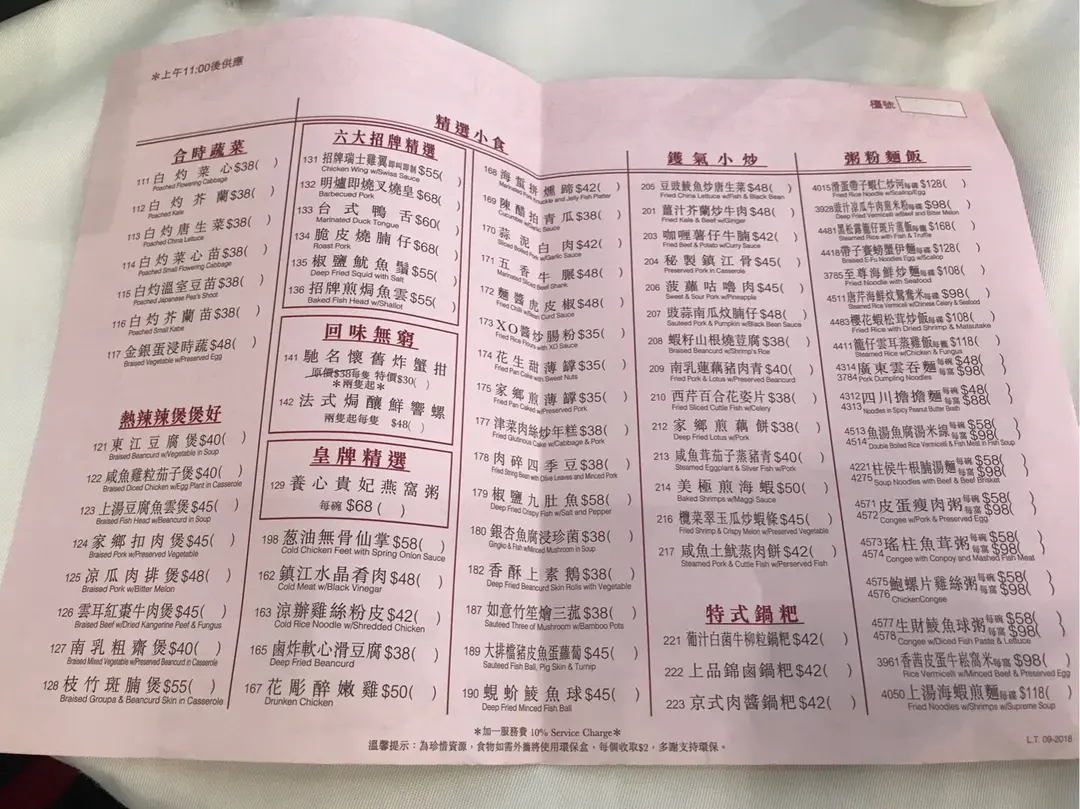 ＊上午11:00後供應
檯號
精選小食
合時蔬菜
111 白灼菜心$38( )
Poached Flowering Cabbage
112 白灼芥蘭$38( )
Poached Kale
113 白灼唐生菜$38( )
Poached China Lettuce
114 白灼菜心苗$38( )
Poached Small Flowering Cabbage
115 白灼溫室豆苗$38( )
Poached Japanese Pea's Shoot
116 白灼芥蘭苗$38( )
Poached Small Kabe
117 金銀蛋浸時蔬$48( )
Braised Vegetable w/Preserved Egg
熱辣辣煲煲好
121 東江豆腐煲$40( )
Braised Beancurd w/Vegetable in Soup
122 咸魚雞粒茄子煲$40( )
Braised Diced Chicken w/Egg Plant in Casserole
123 上湯豆腐魚雲煲$45( )
Braised Fish Head w/Beancurd in Soup
124 家鄉扣肉煲$45( )
Braised Pork w/Preserved Vegetable
125 凉瓜肉排煲$48( )
Braised Pork w/Bitter Melon
126 雲耳紅棗牛肉煲$45( )
Braised Beef w/Dried Kangerine Peet & Fungus
127 南乳粗齋煲$40( )
Braised Mixed Vegetable w/Preserved Beancurd in Casserole
128 枝竹斑腩煲$55( )
Braised Groups & Beancurd Skin in Casserole
六大招牌精選
131 招牌瑞士雞翼即叫即制$55( )
Chicken Wing w/Swiss Sauce
132 明爐即燒叉燒皇$68( )
Barbecued Pork
133 台式鴨舌$60( )
Marinated Duck Tongue
134 脆皮燒腩仔$68( )
Roast Pork
135 椒鹽魷魚鬚$55( )
Deep Fried Squid with Salt
136 招牌煎焗魚雲$55( )
Baked Fish Head w/Shallot
回味無窮
141 馳名懷舊炸蟹拑
原價$38每隻 特價$30( )
＊兩隻起＊
142 法式焗釀鮮響螺
兩隻起每隻 $48( )
皇牌精選
129 養心貴妃燕窩粥
每碗 $68 ( )
198 葱油無骨仙掌$58( )
Cold Chicken Feet with Spring Onion Sauce
162 鎮江水晶肴肉$48( )
Cold Meat w/Black Vinegar
163 涼辦雞絲粉皮$42( )
Cold Rice Noodle w/Shredded Chicken
165 鹵炸軟心滑豆腐$38( )
Deep Fried Beancurd
167 花彫醉嫩雞$50( )
Drunken Chicken
168 海蜇拼燻蹄$42( )
Marinated Pork Knuckle and Jelly Fish Platter
169 陳醋拍青瓜$38( )
Cucumber w/Garlic Sauce
170 蒜泥白肉$42( )
Sliced Pork w/Garlic Sauce
171 五香牛𦟌$48( )
Marinated Sliced Beef Shank
172 麵醬虎皮椒$48( )
Fried Chilli w/Bean Curd Sauce
173 XO醬炒腸粉$35( )
Fried Rice Flours with XO Sauce
174 花生甜薄罉$35( )
Fried Pan Cake w/Sweet Nuts
175 家鄉煎薄罉$35( )
Fried Pan Caked w/Preserved Pork
177 津菜肉絲炒年糕$38( )
Fried Glutinous Cake w/Cabbage & Pork
178 肉碎四季豆$38( )
Fried String Bean with Olive Leaves and Minced Pork
179 椒鹽九肚魚$58( )
Deep Fried Crispy Fish w/Salt and Pepper
180 銀杏魚腐浸珍菌$38( )
Gingko & Fish w/Minced Mushroom in Soup
182 香酥上素鵝$38( )
Deep Fried Beancurd Skin Rolls with Vegetable
187 如意竹笙燴三菰$38( )
Sauteed Three of Mushroom w/Bamboo Pots
189 大排檔豬皮魚蛋蘿蔔$45( )
Sauteed Fish Ball, Pig Skin & Turnip
190 蜆蚧鯪魚球$45( )
Deep Fried Minced Fish Ball
鑊氣小炒
205 豆豉鯪魚炒唐生菜$48( )
Fried China Lettuce w/Fish & Black Bean
201 薑汁芥蘭炒牛肉$48( )
Fried Kale & Beef w/Ginger
203 咖喱薯仔牛腩$42( )
Fried Beef & Potato w/Curry Sauce
204 秘製鎮江骨$45( )
Preserved Pork in Casserole
206 菠蘿咕嚕肉$45( )
Sweet & Sour Pork w/Pineapple
207 豉蒜南瓜炆腩仔$48( )
Sauteed Pork & Pumpkin w/Black Bean Sauce
208 蝦籽山根燒荳腐$38( )
Braised Beancurd w/Shrimp's Roe
209 南乳蓮藕豬肉青$40( )
Fried Pork & Lotus w/Preserved Beancurd
210 西芹百合花姿片$38( )
Fried Sliced Cuttle Fish w/Celery
212 家鄉煎藕餅$38( )
Deep Fried Lotus w/Pork
213 咸魚茸茄子蒸豬青$40( )
Steamed Eggplant & Silver Fish w/Pork
214 美極煎海蝦$50( )
Baked Shrimps w/Maggi Sauce
216 欖菜翠玉瓜炒蝦條$45( )
Fried Shrimp & Crispy Melon w/Preserved Vegetable
217 咸魚土魷蒸肉餅$42( )
Steamed Pork & Cuttle Fish w/Perserved Fish
特式鍋粑
221 葡汁白菌牛柳粒鍋粑$42( )
222 上品錦鹵鍋粑$42( )
223 京式肉醬鍋粑$42( )
粥粉麵飯
4015 滑蛋帶子蝦仁炒河每碟$128( )
Fried Rice Noodle w/Scallop/Egg
3928 豉汁凉瓜牛肉煎米粉每碟$98( )
Deep Fried Vermicelli w/Beef and Bitter Melon
4481 黑松露龍仔斑片蒸飯每籠$168( )
Steamed Rice with Fish & Truffle
4418 帶子賽螃蟹伊麵每碟$128( )
Braised E-Fu Noodles Egg w/Scallop
3785 至尊海鮮炒麵每碟$108( )
Fried Noodle with Seafood
4511 唐芹海鮮炆鴛鴦米每碟$98( )
Steamed Rice Vermicelli w/Chinese Celery & Seafood
4483 櫻花蝦松茸炒飯每碟$108( )
Fried Rice with Dried Shrimp & Matsutake
4411 籠仔雲耳蒸雞飯每籠$118( )
Steamed Rice w/Chicken & Fungus
4314 廣東雲吞麵每碗$48( )
3784 Pork Dumpling Noodles 每窩$98( )
4312 四川擔擔麵每碗$48( )
4313 Noodles in Spicy Peanut Butter Brath 每窩$88( )
4513 魚湯魚腐湯米線每碗$58( )
4514 Double Boiled Rice Vermicelli & Fish Meat in Fish Soup 每窩$98( )
4221 柱侯牛根腩湯麵每碗$58( )
4275 Soup Noodles with Beef & Beef Brisket 每窩$98( )
4571 皮蛋瘦肉粥每碗$58( )
4572 Congee w/Pork & Preserved Egg 每窩$98( )
4573 瑤柱魚茸粥每碗$58( )
4574 Congee with Conpoy and Mashed Fish Meat 每窩$98( )
4575 鮑螺片雞絲粥每碗$58( )
4576 ChickenCongee 每窩$98( )
4577 生財鯪魚球粥每碗$58( )
4578 Congee w/Diced Fish Paste & Lettuce 每窩$98( )
3961 香茜皮蛋牛崧窩米每窩$98( )
Rice Vermicelli w/Minced Beef & Preserved Egg
4050 上湯海蝦煎麵每碟$118( )
Fried Noodles w/Shrimps w/Supreme Soup
＊加一服務費 10% Service Charge＊
溫馨提示：為珍惜資源，食物如需外攜將使用環保盒，每個收取$2，多謝支持環保。
L.T. 09-2018